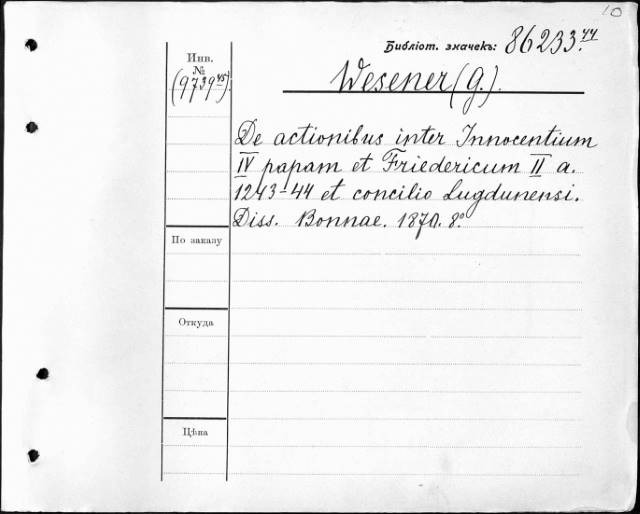 10
Библіот. значекъ: 86233.44
Инв.
№
(9739 45).
Wesener (G.).
De actionibus inter Innocentium
IV papam et Friedericum II a.
1243-44 et concilio Lugdunensi.
Diss. Bonnae. 1870. 8°
По заказу
Откуда
Цѣна